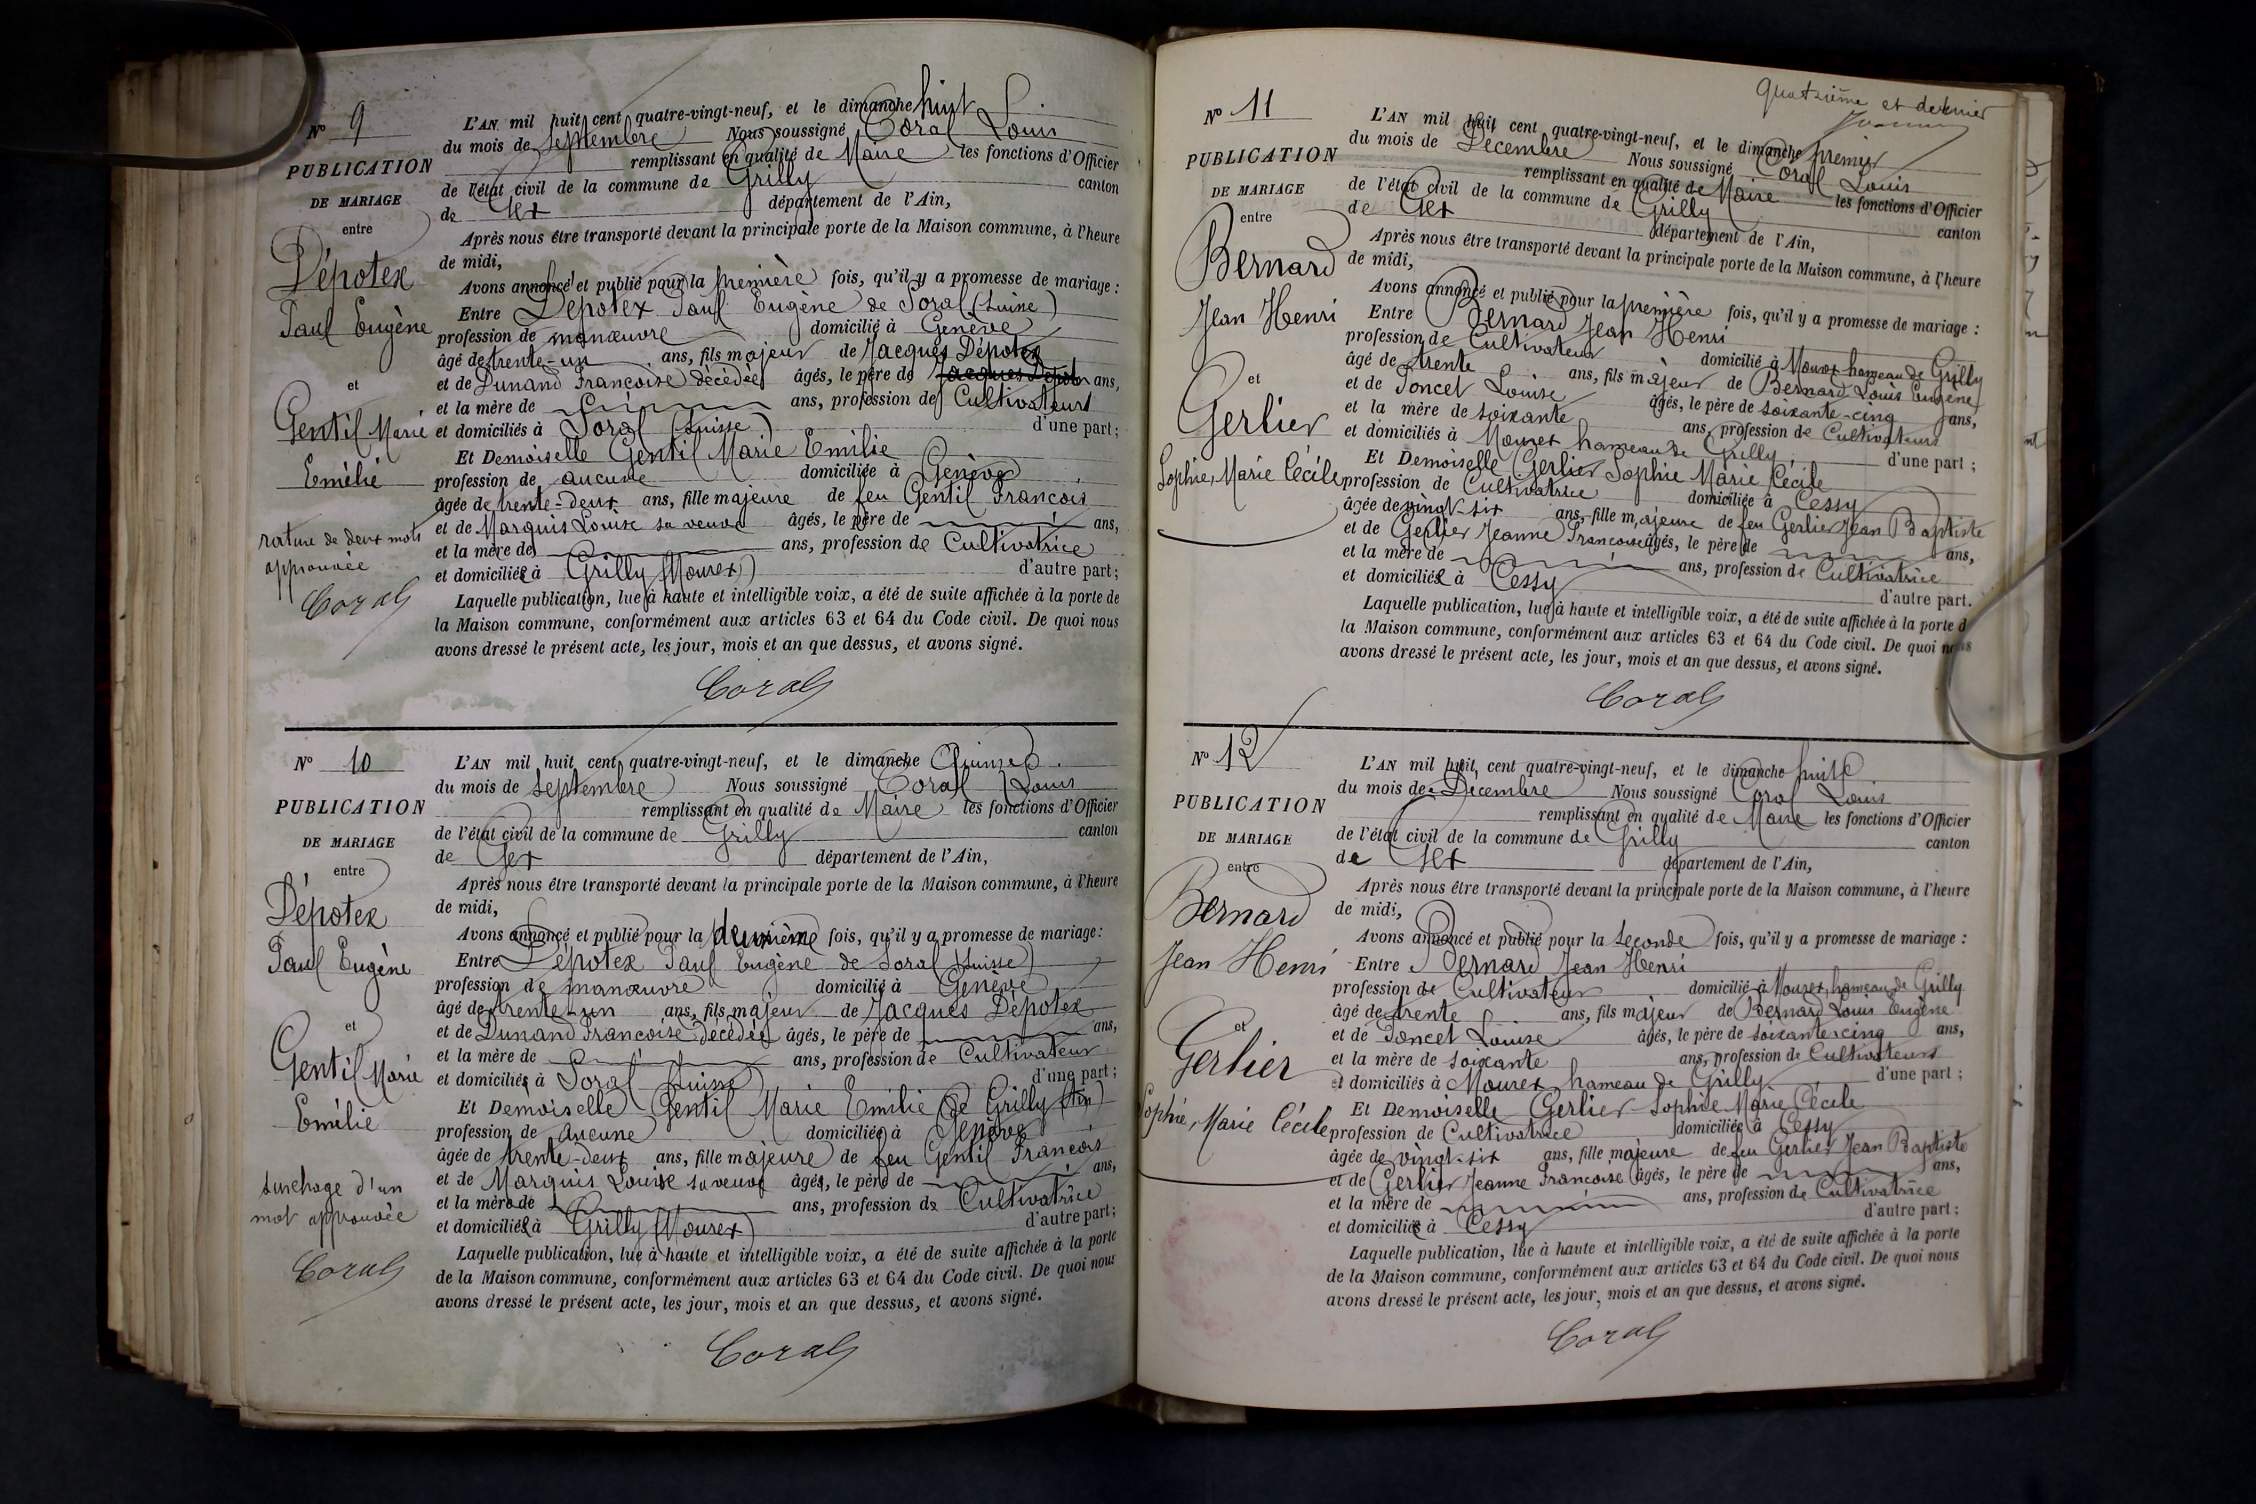 N° 9
PUBLICATION
DE MARIAGE
entre
Dépotex
Paul Eugène
et
Gentil Marie
Emélie
rature de deux mots
approuvée
Coral
L'AN mil huit cent quatre-vingt-neuf, et le dimanche huit
du mois de septembre Nous soussigné Coral Louis
remplissant en qualité de Maire les fonctions d'Officier
de l'état civil de la commune de Grilly canton
de Gex département de l'Ain,
Après nous être transporté devant la principale porte de la Maison commune, à l'heure
de midi,
Avons annoncé et publié pour la première fois, qu'il y a promesse de mariage :
Entre Dépotex Paul Eugène de Soral (Suisse)
profession de manœuvre domicilié à Genève
âgé de trente-un ans, fils majeur de Jacques Dépotex
et de Dunand Françoise décédée âgés, le père de Jacques Dépotex ans,
et la mère de ans, profession de Cultivateurs
et domiciliés à Soral (Suisse) d'une part ;
Et Demoiselle Gentil Marie Emilie
profession de aucune domiciliée à Genève
âgée de trente-deux ans, fille majeure de feu Gentil François
et de Marquis Louise sa veuve âgés, le père de ans,
et la mère de ans, profession de Cultivatrice
et domiciliée à Grilly (Mourex) d'autre part ;
Laquelle publication, lue à haute et intelligible voix, a été de suite affichée à la porte de
la Maison commune, conformément aux articles 63 et 64 du Code civil. De quoi nous
avons dressé le présent acte, les jour, mois et an que dessus, et avons signé.
Coral
N° 10
PUBLICATION
DE MARIAGE
entre
Dépotex
Paul Eugène
et
Gentil Marie
Emélie
surchage d'un
mot approuvée
Coral
L'AN mil huit cent quatre-vingt-neuf, et le dimanche Quinze
du mois de septembre Nous soussigné Coral Louis
remplissant en qualité de Maire les fonctions d'Officier
de l'état civil de la commune de Grilly canton
de Gex département de l'Ain,
Après nous être transporté devant la principale porte de la Maison commune, à l'heure
de midi,
Avons annoncé et publié pour la deuxième fois, qu'il y a promesse de mariage :
Entre Dépotex Paul Eugène de Soral (Suisse)
profession de manœuvre domicilié à Genève
âgé de trente-un ans, fils majeur de Jacques Dépotex
et de Dunand Françoise décédée âgés, le père de ans,
et la mère de ans, profession de Cultivateur
et domiciliés à Soral (Suisse) d'une part ;
Et Demoiselle Gentil Marie Emilie de Grilly (Ain)
profession de aucune domiciliée à Genève
âgée de trente-deux ans, fille majeure de feu Gentil François
et de Marquis Louise sa veuve âgés, le père de ans,
et la mère de ans, profession de Cultivatrice
et domiciliée à Grilly (Mourex) d'autre part ;
Laquelle publication, lue à haute et intelligible voix, a été de suite affichée à la porte
de la Maison commune, conformément aux articles 63 et 64 du Code civil. De quoi nous
avons dressé le présent acte, les jour, mois et an que dessus, et avons signé.
Coral
Quatzième et dernier
N° 11
PUBLICATION
DE MARIAGE
entre
Bernard
Jean Henri
et
Gerlier
Sophie, Marie Cécile
L'AN mil huit cent quatre-vingt-neuf, et le dimanche premier
du mois de Décembre Nous soussigné Coral Louis
remplissant en qualité de Maire les fonctions d'Officier
de l'état civil de la commune de Grilly canton
de Gex département de l'Ain,
Après nous être transporté devant la principale porte de la Maison commune, à l'heure
de midi,
Avons annoncé et publié pour la première fois, qu'il y a promesse de mariage :
Entre Bernard Jean Henri
profession de Cultivateur domicilié à Mourex hameau de Grilly
âgé de trente ans, fils majeur de Bernard Louis Eugène
et de Poncet Louise âgés, le père de soixante-cinq ans,
et la mère de soixante ans, profession de Cultivateurs
et domiciliés à Mourex hameau de Grilly d'une part ;
Et Demoiselle Gerlier Sophie Marie Cécile
profession de Cultivatrice domiciliée à Cessy
âgée de vingt-six ans, fille majeure de feu Gerlier Jean Baptiste
et de Gerlier Jeanne Françoise âgés, le père de ans,
et la mère de ans, profession de Cultivatrice
et domiciliée à Cessy d'autre part.
Laquelle publication, lue à haute et intelligible voix, a été de suite affichée à la porte d
la Maison commune, conformément aux articles 63 et 64 du Code civil. De quoi nous
avons dressé le présent acte, les jour, mois et an que dessus, et avons signé.
Coral
N° 12
PUBLICATION
DE MARIAGE
entre
Bernard
Jean Henri
et
Gerlier
Sophie, Marie Cécile
L'AN mil huit cent quatre-vingt-neuf, et le dimanche huit
du mois de Décembre Nous soussigné Coral Louis
remplissant en qualité de Maire les fonctions d'Officier
de l'état civil de la commune de Grilly canton
de Gex département de l'Ain,
Après nous être transporté devant la principale porte de la Maison commune, à l'heure
de midi,
Avons annoncé et publié pour la seconde fois, qu'il y a promesse de mariage :
Entre Bernard Jean Henri
profession de Cultivateur domicilié à Mourex, hameau de Grilly
âgé de trente ans, fils majeur de Bernard Louis Eugène
et de Poncet Louise âgés, le père de soixante-cinq ans,
et la mère de soixante ans, profession de Cultivateurs
et domiciliés à Mourex hameau de Grilly d'une part ;
Et Demoiselle Gerlier Sophie Marie Cécile
profession de Cultivatrice domiciliée à Cessy
âgée de vingt-six ans, fille majeure de feu Gerlier Jean Baptiste
et de Gerlier Jeanne Françoise âgés, le père de ans,
et la mère de ans, profession de Cultivatrice
et domiciliée à Cessy d'autre part ;
Laquelle publication, lue à haute et intelligible voix, a été de suite affichée à la porte
de la Maison commune, conformément aux articles 63 et 64 du Code civil. De quoi nous
avons dressé le présent acte, les jour, mois et an que dessus, et avons signé.
Coral